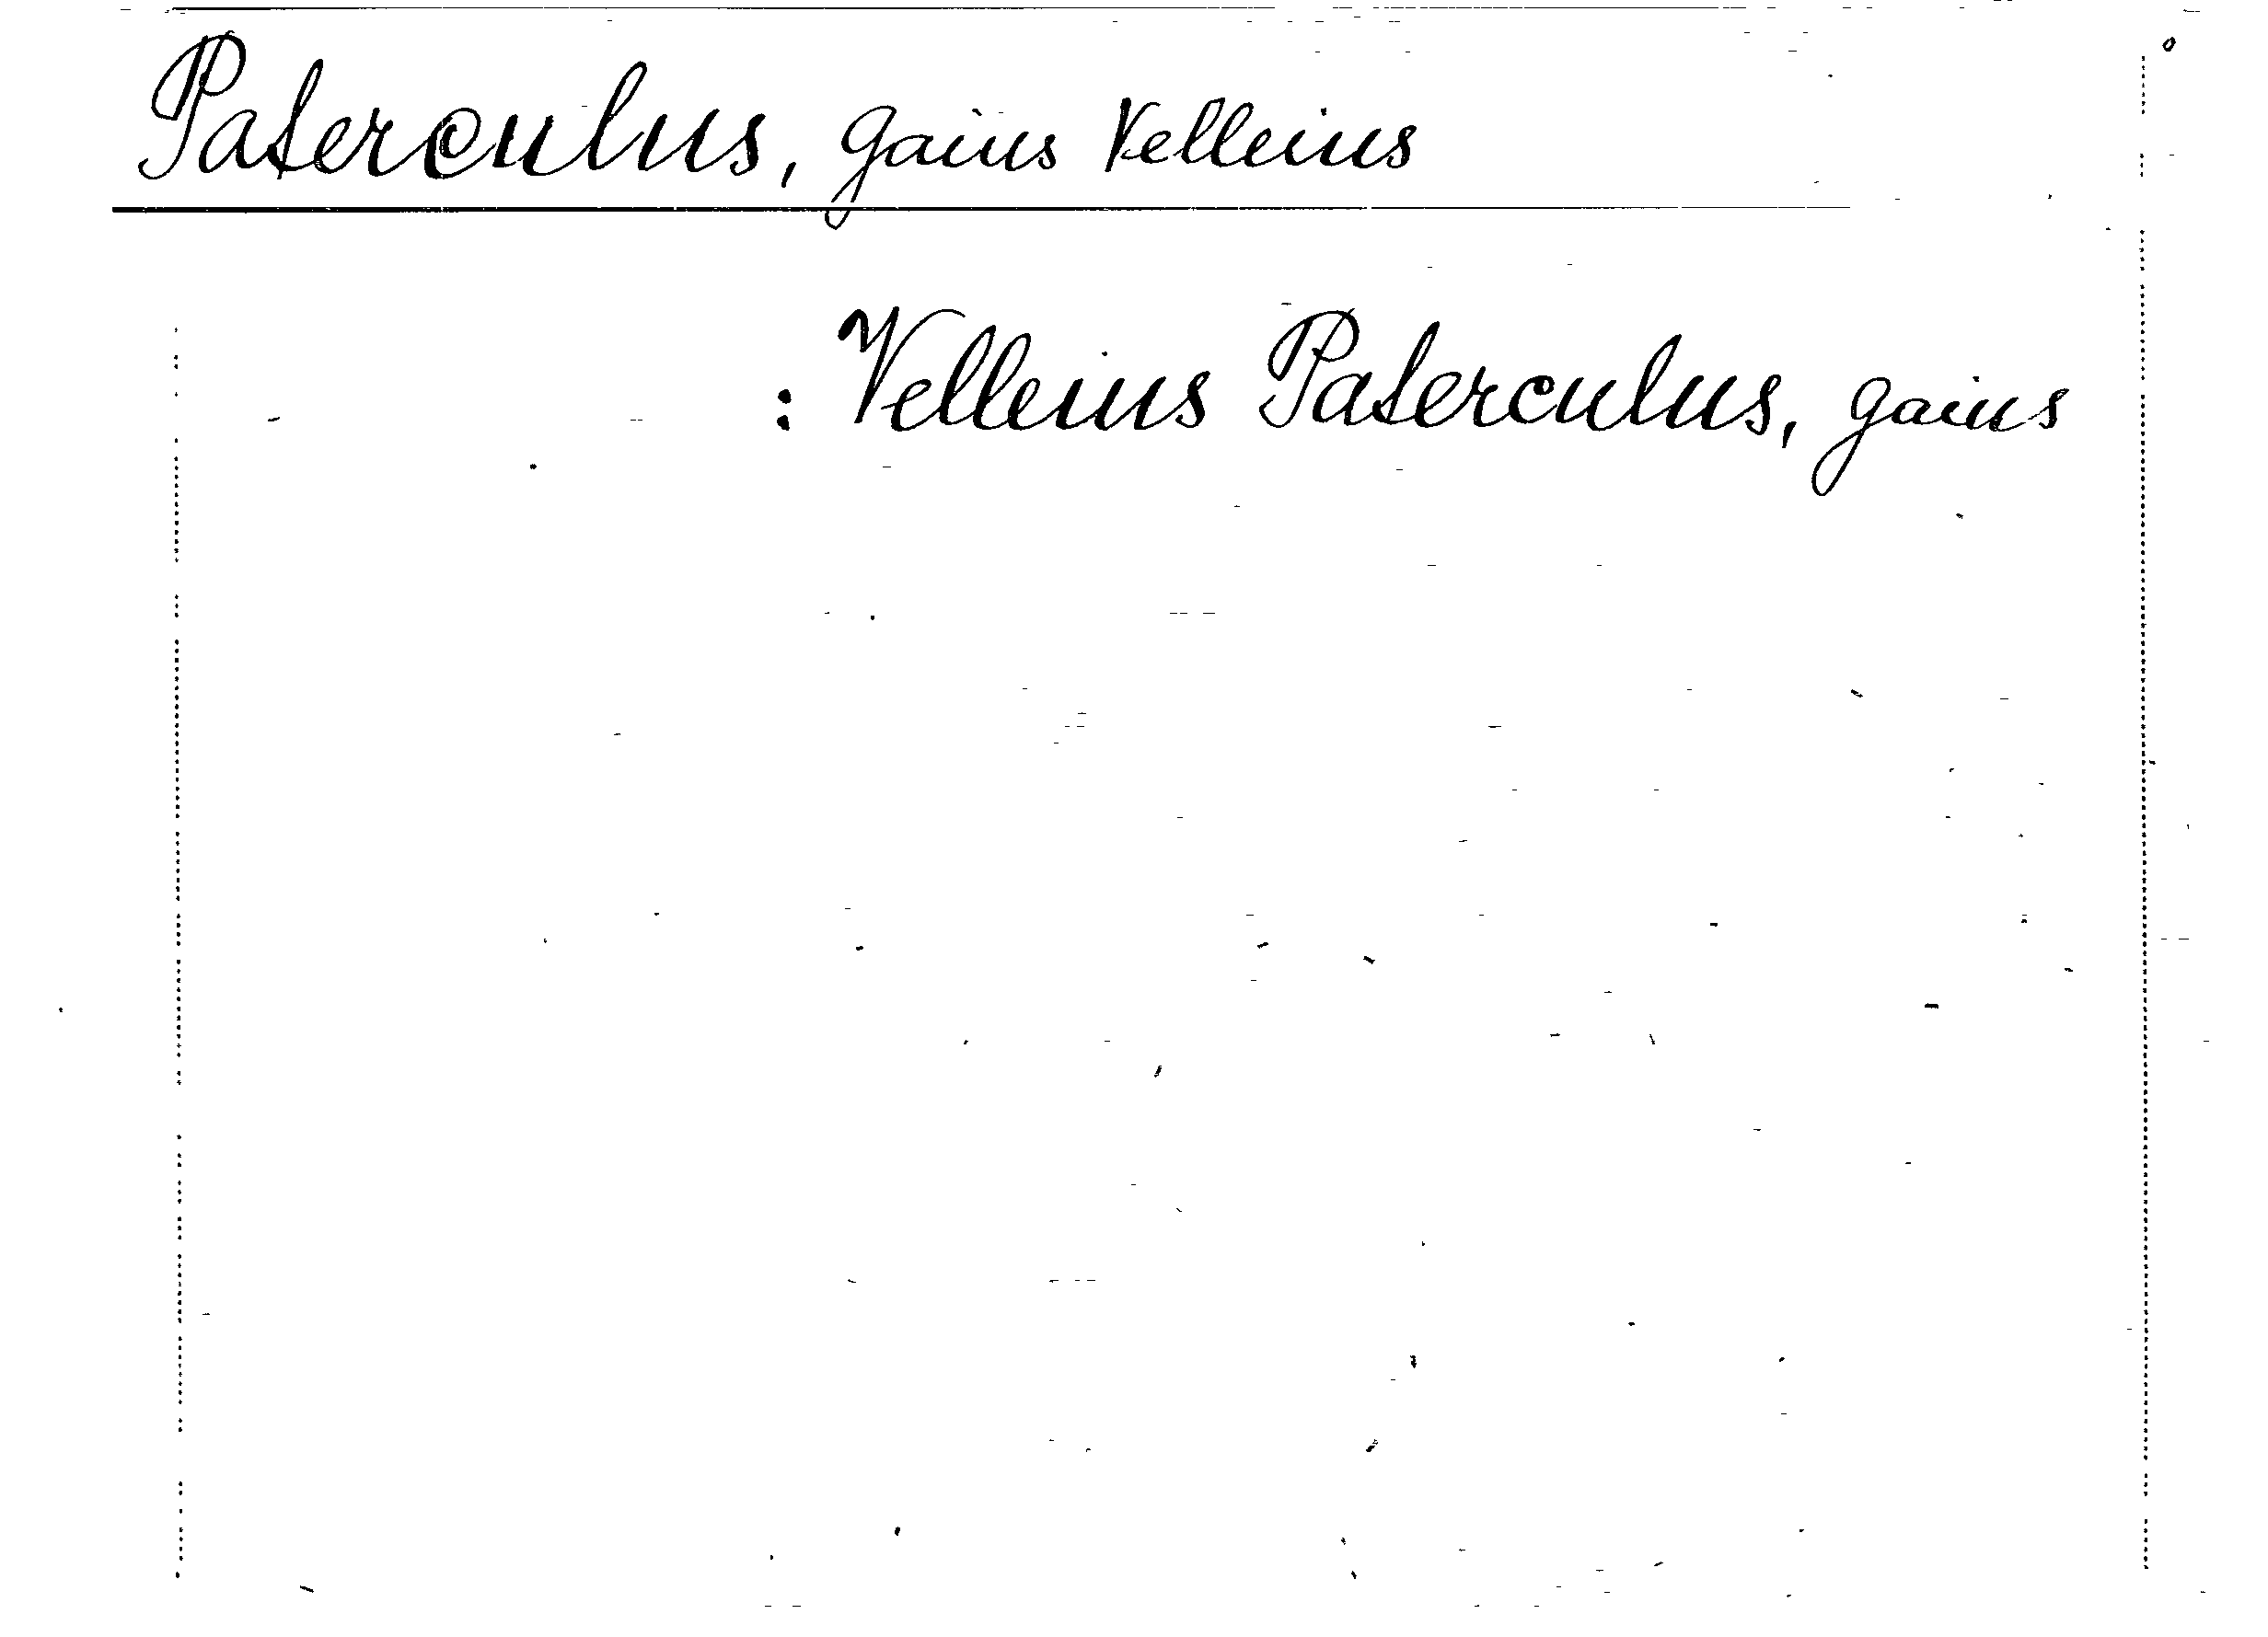 Paterculus, Gaius Velleius
: Velleius Paterculus, Gaius